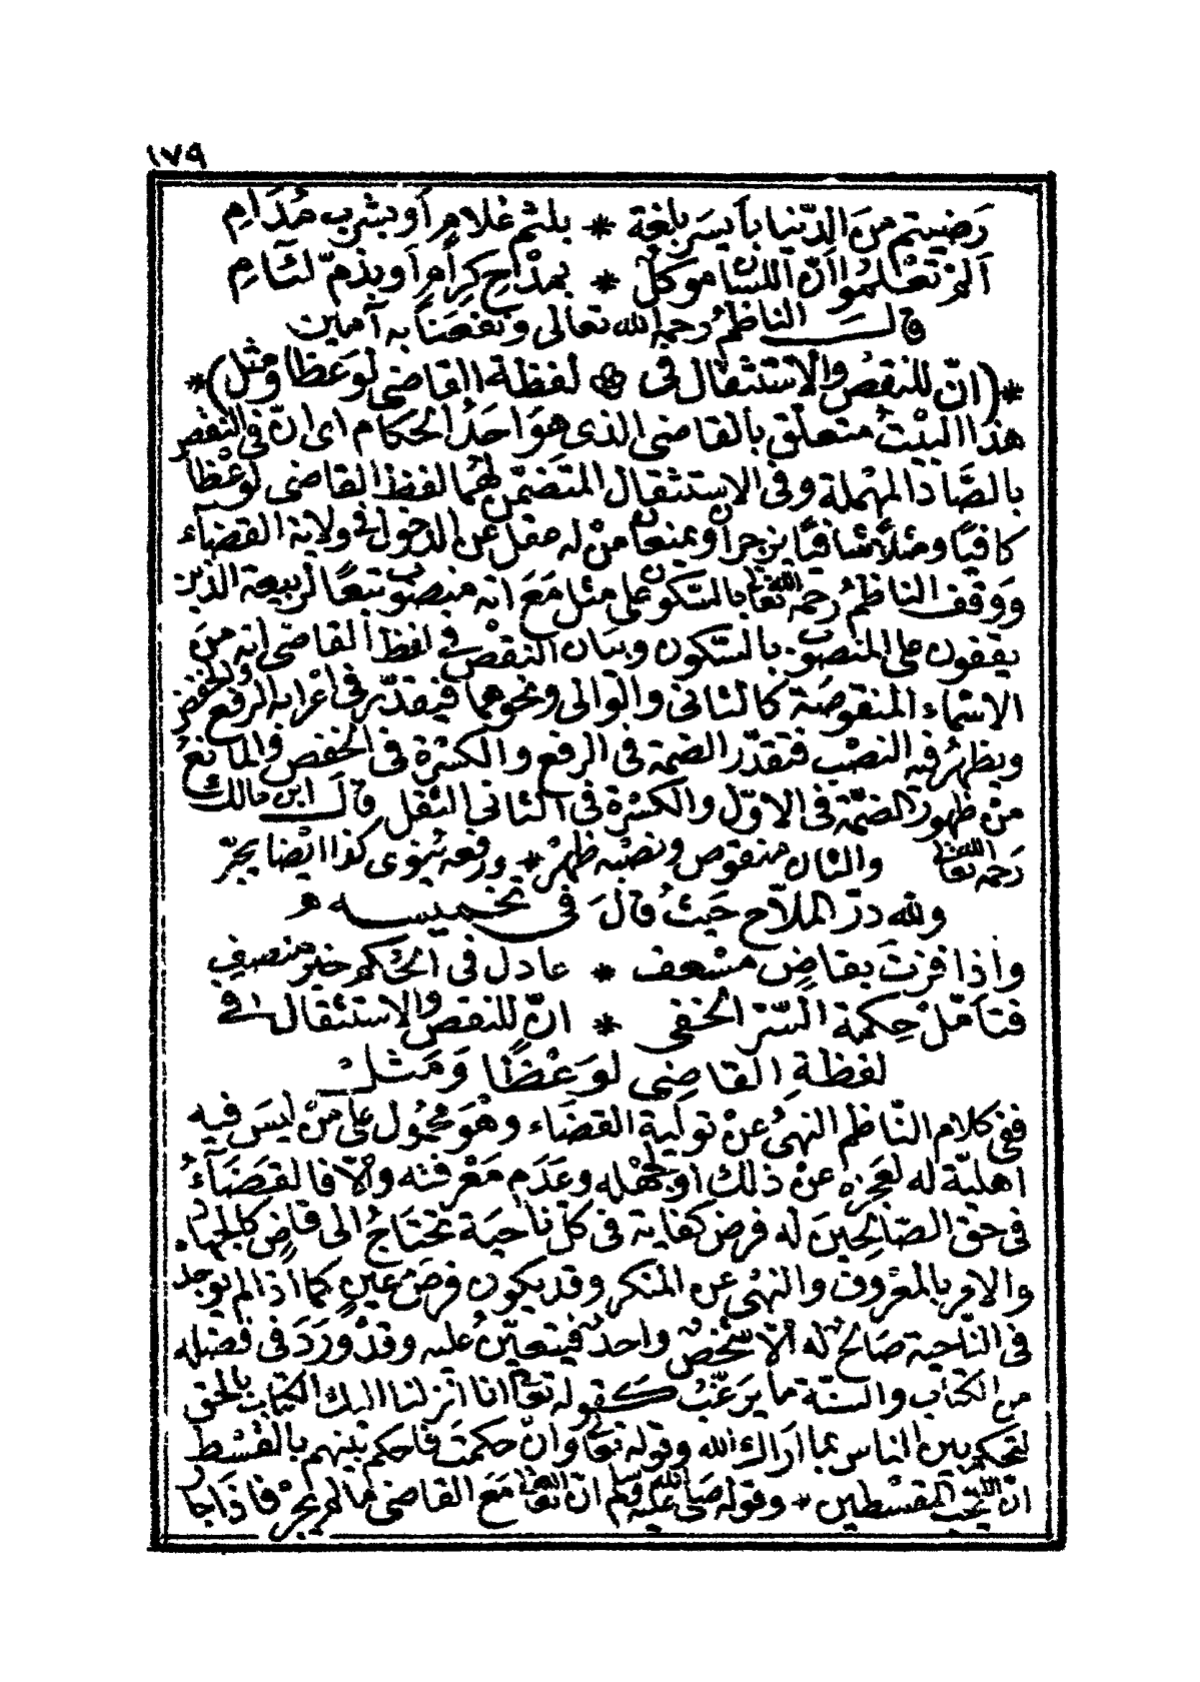 ١٧٩
رَضيتم منَ الدّنيا بأيسَر بلغة * بلثم غلامٍ أو بشرب مُدَامِ
ألمْ تعْلموا أنّ اللسان موكل * بمدْح كِرامٍ أو بذمّ لئامِ
قال الناظمُ رحمه الله تعالى ونفعَنا به آمين
*(انّ للنقصِ والاستثقال في لفظة القاضي لوَعظا ومثل)*
هذا البيْت متعلق بالقاضي الذي هوَ احَدُ الحكام اى انّ في النقص
بالصَّاد المهملة وفي الاستثقال المتضمّن لهُما لفظ القاضي لوعْظا
كافيًا ومثلاً شافيًا يزجران ويمنعان منْ له عقل عن الدخول في ولاية القضآء
ووقف الناظمُ رحمه الله تعالى بالسّكون على مثل مَعَ انه منصوب تبعًا لربيعة الذين
يقفون على المنصوب بالسّكون وبيَان النقْص في لفظ القاضي انه منَ
الاسْماء المنقوصَة كالثاني والوالي ونحوهما فيقدّر في اعْرابه الرفع والخفض
ويظهرُ فيه النصْب فتقدّر الضمة في الرفع والكسْرة في الخفض والمانعُ
منْ ظهور الضمّة في الاوّل والكسْرة في الثاني الثقل قالَ ابن مالك
رَحمه الله تعالى والثان منقوص ونصْبه ظهرْ * ورفعه يُنوى كذا ايْضا يجرّ
ولله درّ الملاّح حَيثُ قالَ في تخميسه
واذا فزتَ بقاضٍ مسْعف * عادل في الحُكم خيرٍ منصفِ
فتأمّلْ حِكمة السّرّ الخفي * انّ للنقص والاستثقال في
لفظةِ القاضِي لوَعْظًا وَمَثل
ففي كلام النّاظم النهيُ عنْ تولية القضَاء وهُوَ محْمُول على منْ ليسَ فيه
اهليّة له لعجزه عنْ ذلك أو لجهْله وعَدَم مَعْرفته والاّ فالقضَآءُ
في حق الصّالحينَ له فرض كفاية في كلّ ناحيَة تحْتاجُ الى قاضٍ كالجهاد
والامر بالمعْروف والنهْى عن المنكر وقد يكون فرْضَ عينٍ كما اذا لم يوجد
في النّاحية صَالح له الاّ شخص واحد فيتعيّنُ عليه وقدْ ورَدَ في فضله
من الكتاب والسنّة ما يرَغّبُ كقوله تعالى انا انزلنا اليك الكتاب بالحق
لتحكم بين الناس بما اراك الله وقوله تعالى وانْ حكمتَ فاحكم بيْنهم بالقسْط
انّ الله يحبّ المقسْطين * وقوله صَلى الله عليه وسلم انّ الله تعالى مَعَ القاضي مالم يجرْ فاذَا جار